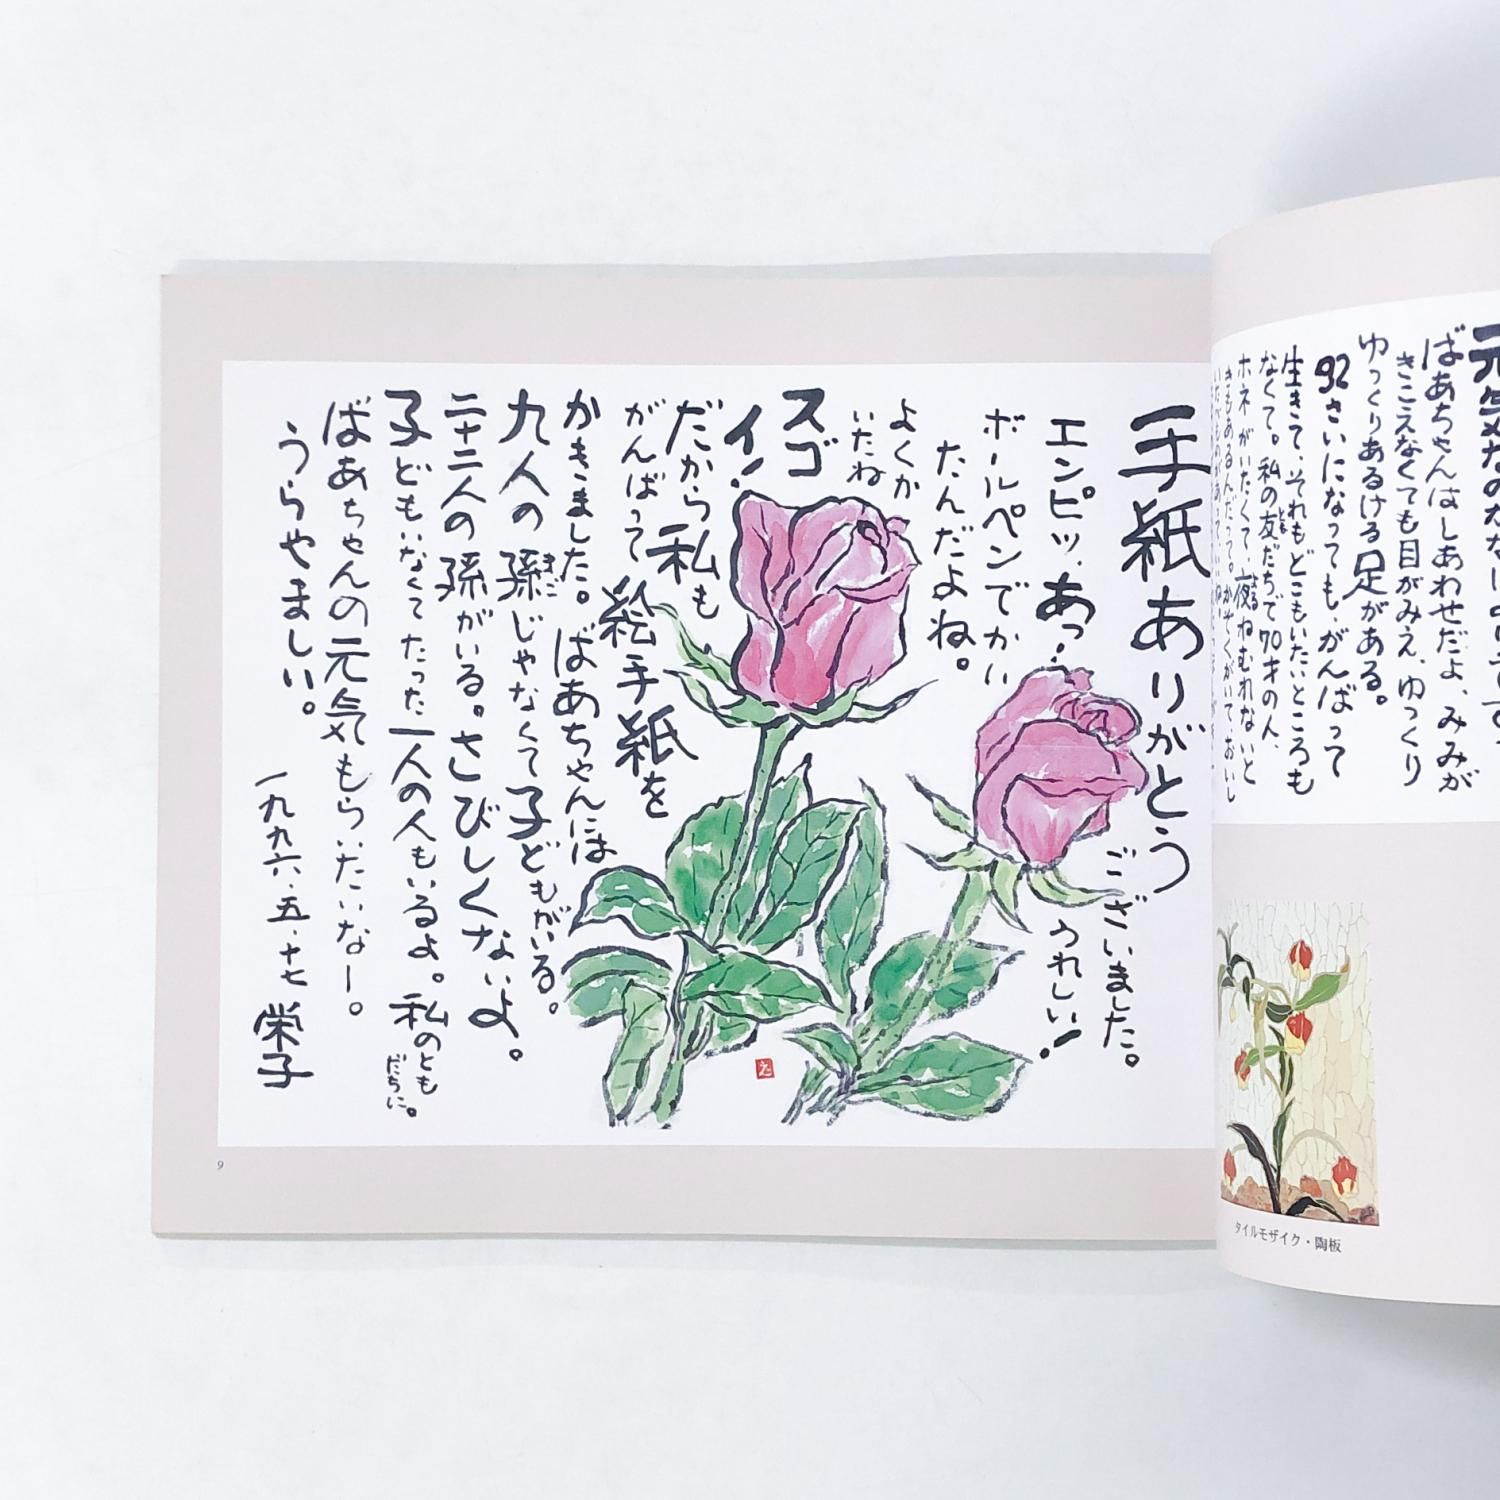 元気な
ばあちゃんはしあわせだよ、みみが
きこえなくても目がみえ、ゆっくり
ゆっくりあるける足がある。
92さいになっても、がんばって
生きて、それもどこもいたいところも
なくて。私の友だちで70才の人、
とも
ホネがいたくて、夜ねむれないと
よる
きもあるんだって。かぞくがいて、おいし
タイルモザイク・陶板
手紙ありがとう
ございました。
うれしい!
エンピツ、あっ!
ボールペンでかい
たんだよね。
よくか
いたね
スゴ
イ!
だから私も
がんばって絵手紙を
かきました。ばあちゃんには
九人の孫じゃなくて子どもがいる。
まご
二十二人の孫がいる。さびしくないよ。
子どもいなくてたった一人の人もいるよ。私のとも
だちに。
ばあちゃんの元気もらいたいなー。
うらやましい。
一九九六・五・十七 栄子
え
9